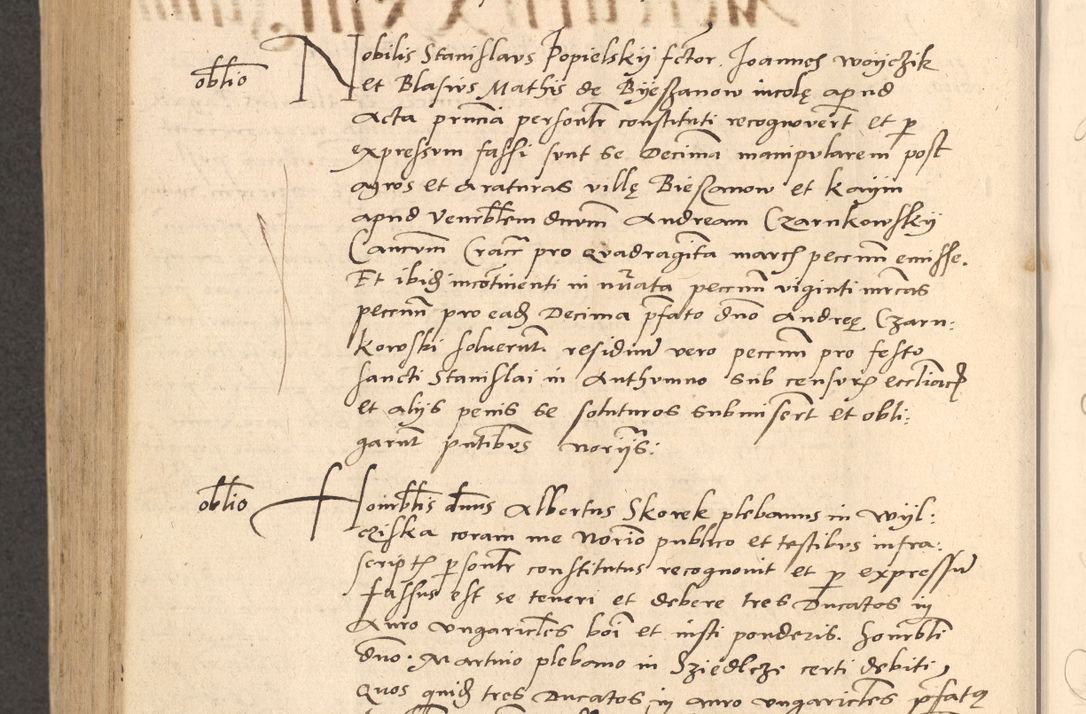 oblio
Nobilis Stanislavs Popielskÿ fctor. Joannes woÿczik
et Blasivs Mathis de Byeszanow incolę apud
Acta pñcia personlr constituti recognovert et p
expressvm fassi svnt se Decimã manipvlarem post
agros et Araturas villę Bieszanow et Kaym
apud Venrblem dnvm Andream Czarnkowskÿ
Cancvm Crac pro Qvadraginta march peccnm emisse.
Et ibid incotinenti in nuata peccnm viginti mrcas
peccnm pro ead Decima pfato dno Andreę Czarn:
kowski solverunt residuu vero peccnm pro festo
sancti Stanislai in Authvmno svb censvr eccliac
et alÿs penis se soluturos submisert et obli:
garut pntibvs norÿs:
oblio
Honrblis dnus Albertus Skorek plebanus in Wÿl:
Cziska coram me Norio publico et testibvs infra:
script psonlr constitutus recognouit et p expressu
fassus est se teneri et debere tres Ducatos in
Auro vngaricles boi et iusti ponderis. honrbli
dno. Martino plebano in Sziedlczi certi debiti
Quos quid tres Ducatos in auro vngaricles pfatq